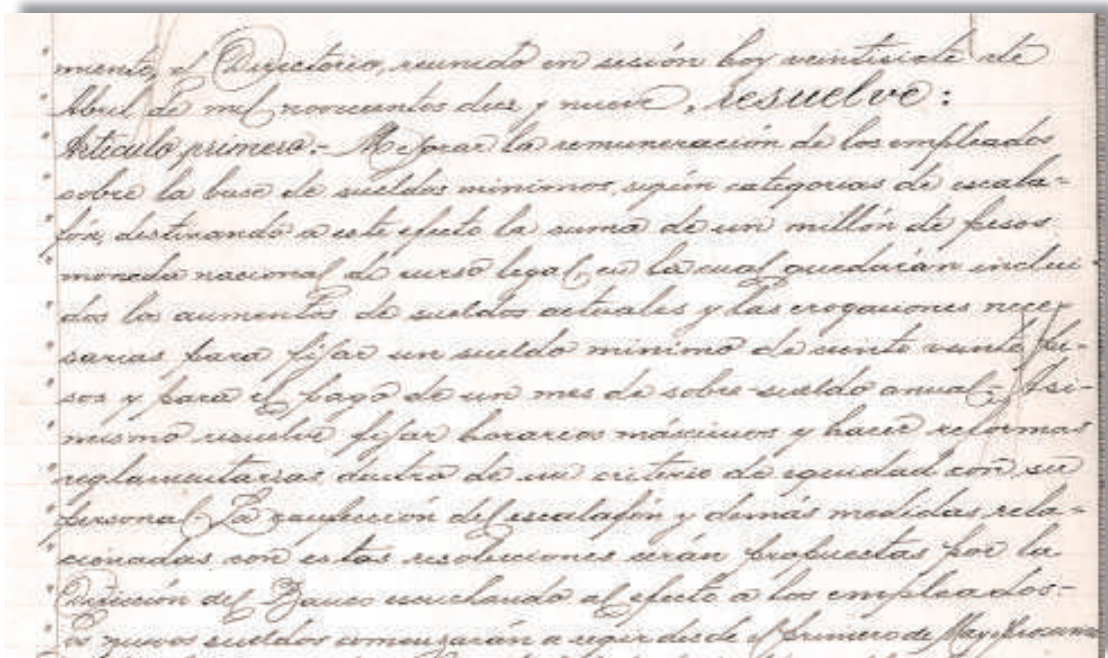 mente, el Directorio, reunido en sesión hoy veintisiete de
Abril de mil novecientos diez y nueve, resuelve:
Artículo primero.- Mejorar la remuneración de los empleados
sobre la base de sueldos mínimos, según categorias de escala=
fon, destinando a este efecto la suma de un millón de pesos
moneda nacional de curso legal, en la cual quedarán inclui
dos los aumentos de sueldos actuales y las erogaciones nece,
sarias para fijar un sueldo mínimo de ciento veinte pe-
sos y para el pago de un mes de sobre-sueldo anual.- Asi-
mismo resuelve fijar horarios máximos y hacer reformas
reglamentarias dentro de un criterio de equidad con su
personal. La confección del escalafón y demás medidas rela=
cionadas con estas resoluciones serán propuestas por la
Dirección del Banco escuchando al efecto a los empleados.-
os nuevos sueldos comenzarán a regir desde el primero de Mayo